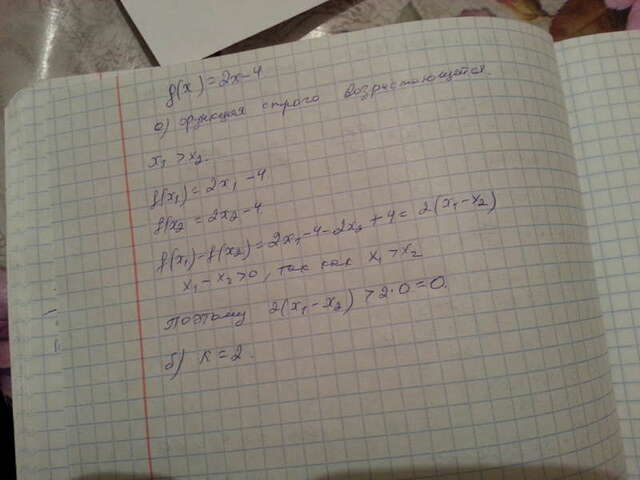 f(x) = 2x-4
а) функция строго возрастающаяся.
x₁ > x₂.
f(x₁) = 2x₁ - 4
f(x₂ = 2x₂ - 4
f(x₁) - f(x₂) = 2x₁ - 4 - 2x₂ + 4 = 2(x₁ - x₂)
x₁ - x₂ > 0, так как x₁ > x₂
Поэтому 2(x₁ - x₂) > 2·0 = 0
б) k = 2.